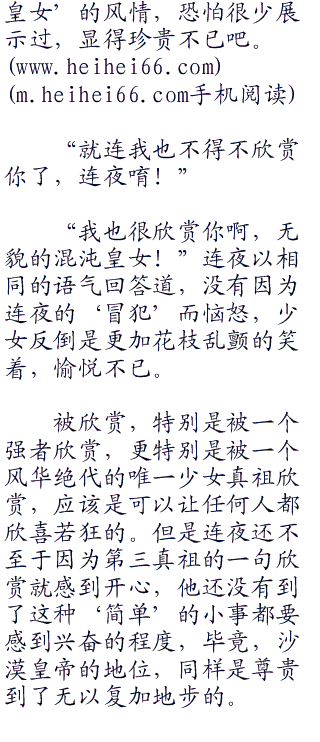 皇女’的风情，恐怕很少展
示过，显得珍贵不已吧。
(www.heihei66.com)
(m.heihei66.com手机阅读)
“就连我也不得不欣赏
你了，连夜唷！”
“我也很欣赏你啊，无
貌的混沌皇女！”连夜以相
同的语气回答道，没有因为
连夜的‘冒犯’而恼怒，少
女反倒是更加花枝乱颤的笑
着，愉悦不已。
被欣赏，特别是被一个
强者欣赏，更特别是被一个
风华绝代的唯一少女真祖欣
赏，应该是可以让任何人都
欣喜若狂的。但是连夜还不
至于因为第三真祖的一句欣
赏就感到开心，他还没有到
了这种‘简单’的小事都要
感到兴奋的程度，毕竟，沙
漠皇帝的地位，同样是尊贵
到了无以复加地步的。